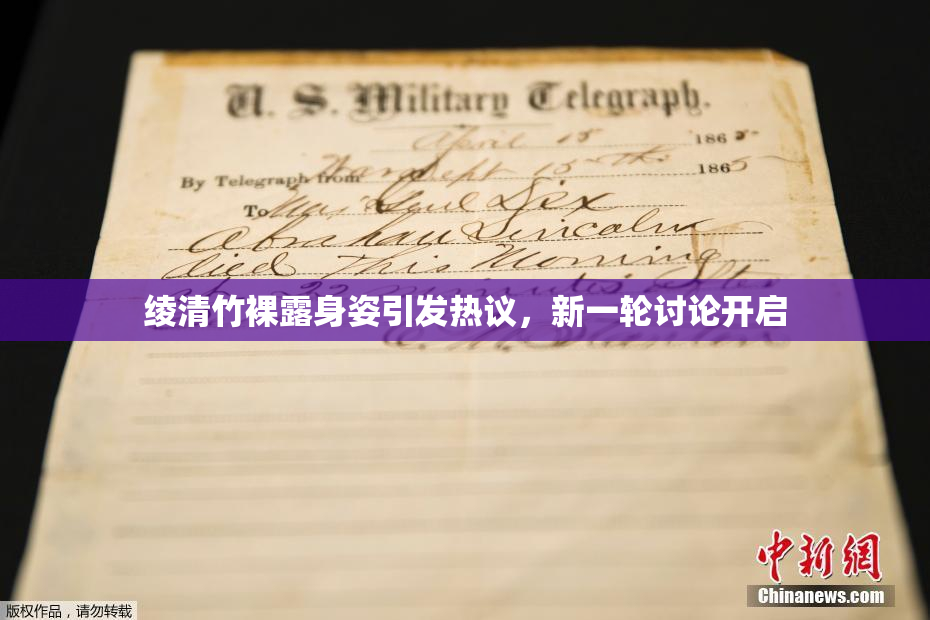 U. S. Military Telegraph.
April 15 1865
By Telegraph from War Dept 15th 1865
To Maj Genl Dix
Abraham Lincoln
died This Morning
at 22 minutes After
绫清竹裸露身姿引发热议，新一轮讨论开启
中新網
Chinanews.com
版权作品，请勿转载